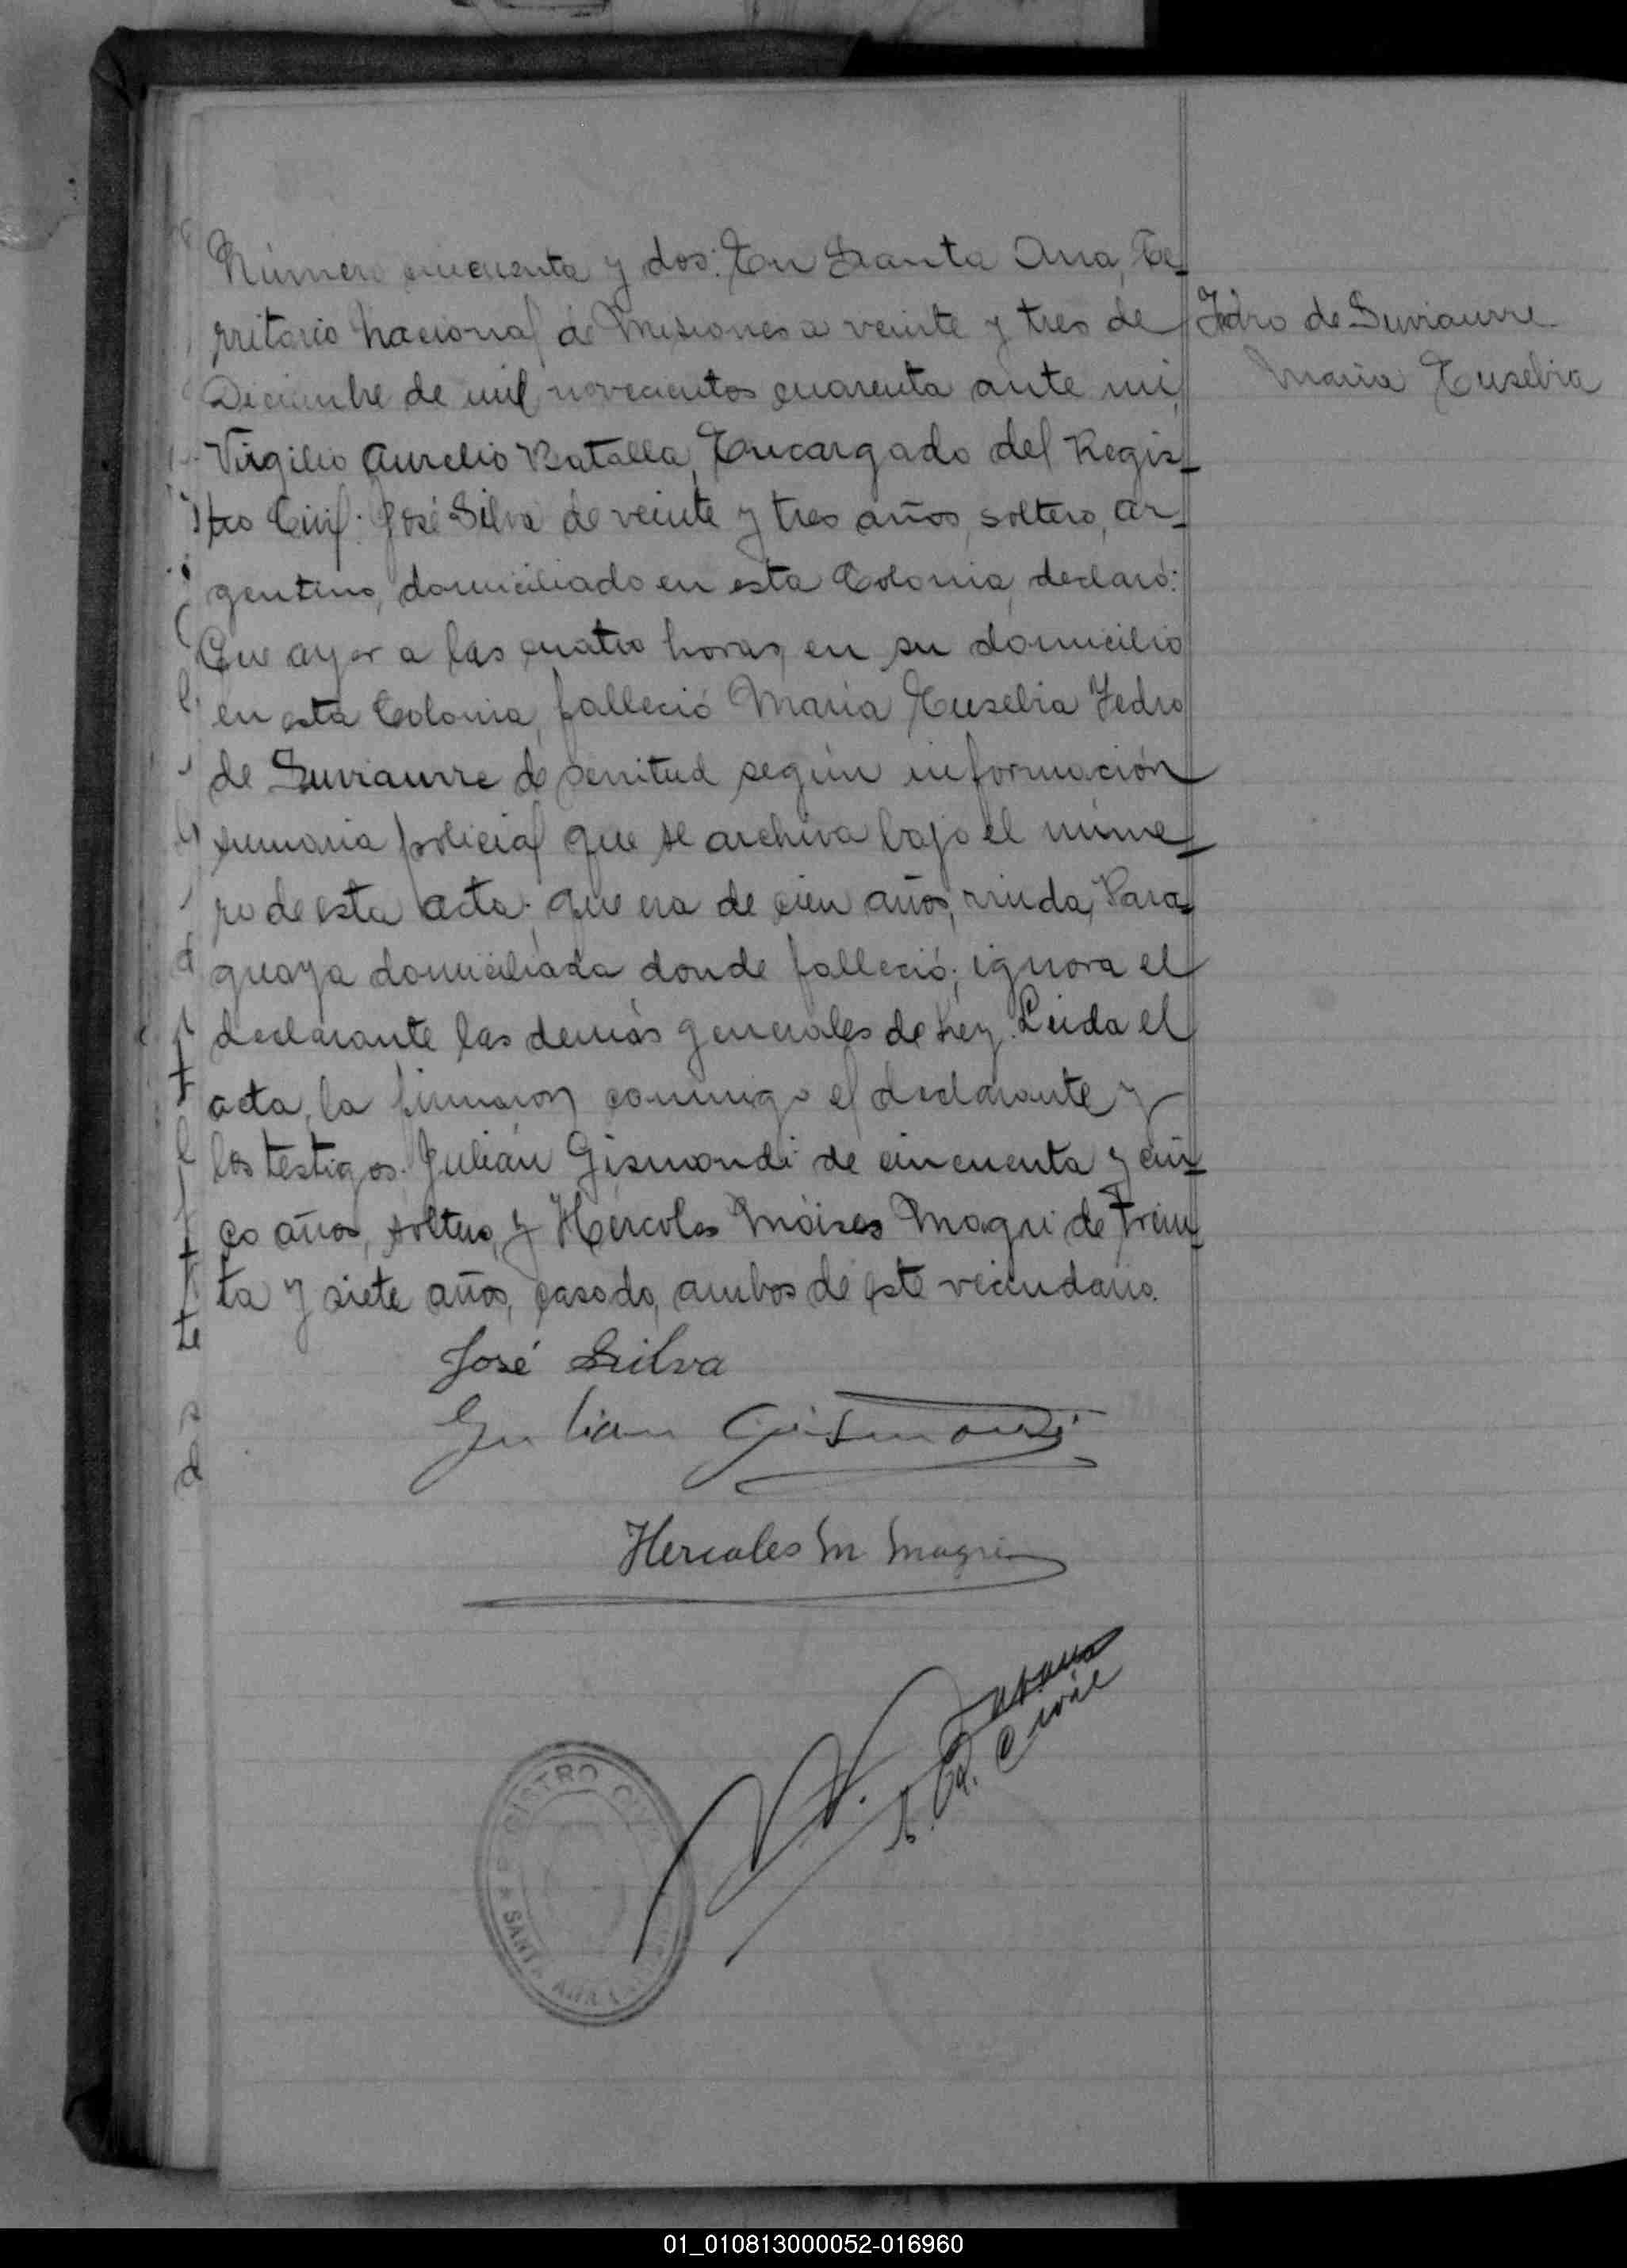 Número cincuenta y dos: En Santa Ana, Te-
rritorio Nacional de Misiones a veinte y tres de
Diciembre de mil novecientos cuarenta ante mi,
Virgilio Aurelio Batalla, Encargado del Regis-
tro Civil: José Silva de veinte y tres años, soltero, ar-
gentino, domiciliado en esta Colonia, declaró:
Que ayer a las cuatro horas, en su domicilio
en esta Colonia, falleció María Eusebia Fedro
de Suviaurre de senitud según información
sumaria policial que se archiva bajo el núme-
ro de esta acta; que era de cien años, viuda, Para-
guaya domiciliada donde falleció; ignora el
declarante las demás generales de Ley. Leida el
acta, la firmaron conmigo el declarante y
los testigos: Julián Gismondi de cincuenta y cin-
co años, soltero, y Hércoles Móises Magri de trein-
ta y siete años, casado, ambos de este vecindario.
Fedro de Suviaurre
María Eusebia
José Silva
Julian Gismondi
Hercoles M Magri
V. A. Batalla
E. R. Civil
REGISTRO CIVIL
SANTA ANA
01_010813000052-016960